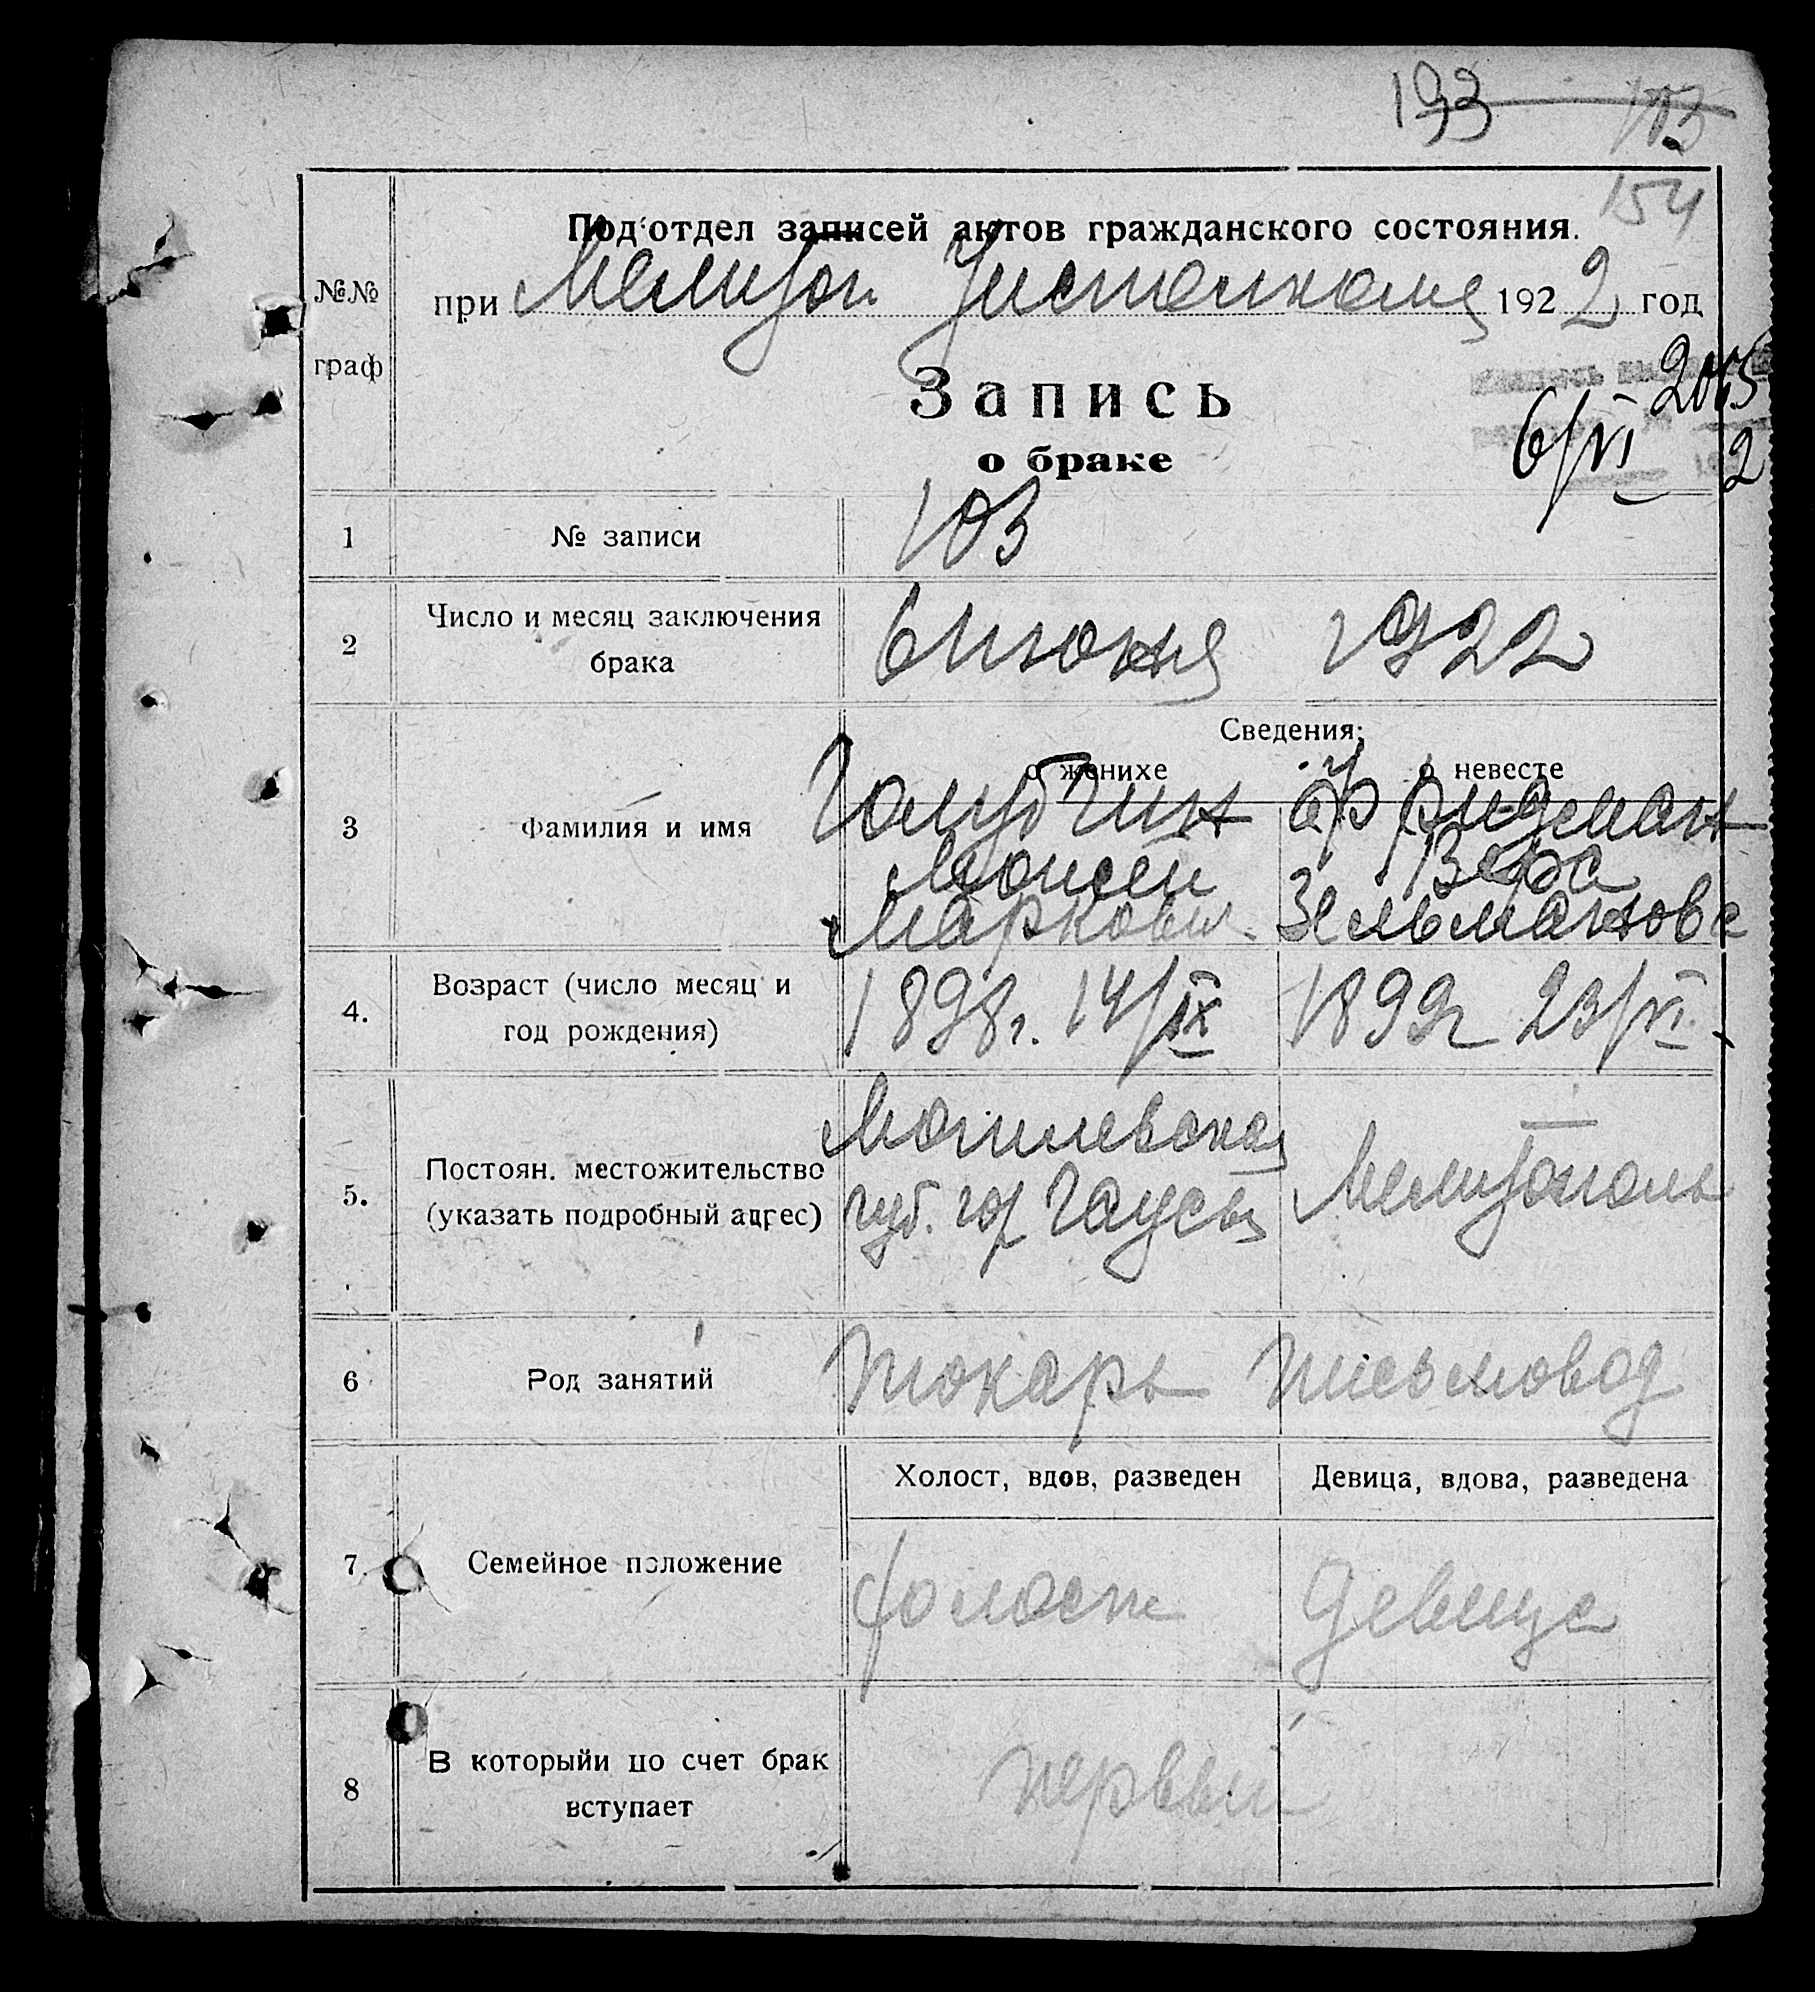 193 103
154
Под'отдел записей актов гражданского состояния.
№№ граф
при Мелитоп. Уисполкоме 1922 год
Запись
о браке
2005
6/VI 2
1 № записи 103
2 Число и месяц заключения брака 6 июня 1922
Сведения:
о женихе о невесте
3 Фамилия и имя
Голубчин Фридман
Моисей Вера
Марков. Зельманова
4. Возраст (число месяц и год рождения) 1898г. 14/IX 1899г 23/VI.
5. Постоян. местожительство (указать подробный адрес)
Могилевская
губ. гор Чаусы Мелитополь
6 Род занятий токарь письмовод
Холост, вдов, разведен Девица, вдова, разведена
7 Семейное положение холост девица
8 В которыйи по счет брак вступает первый